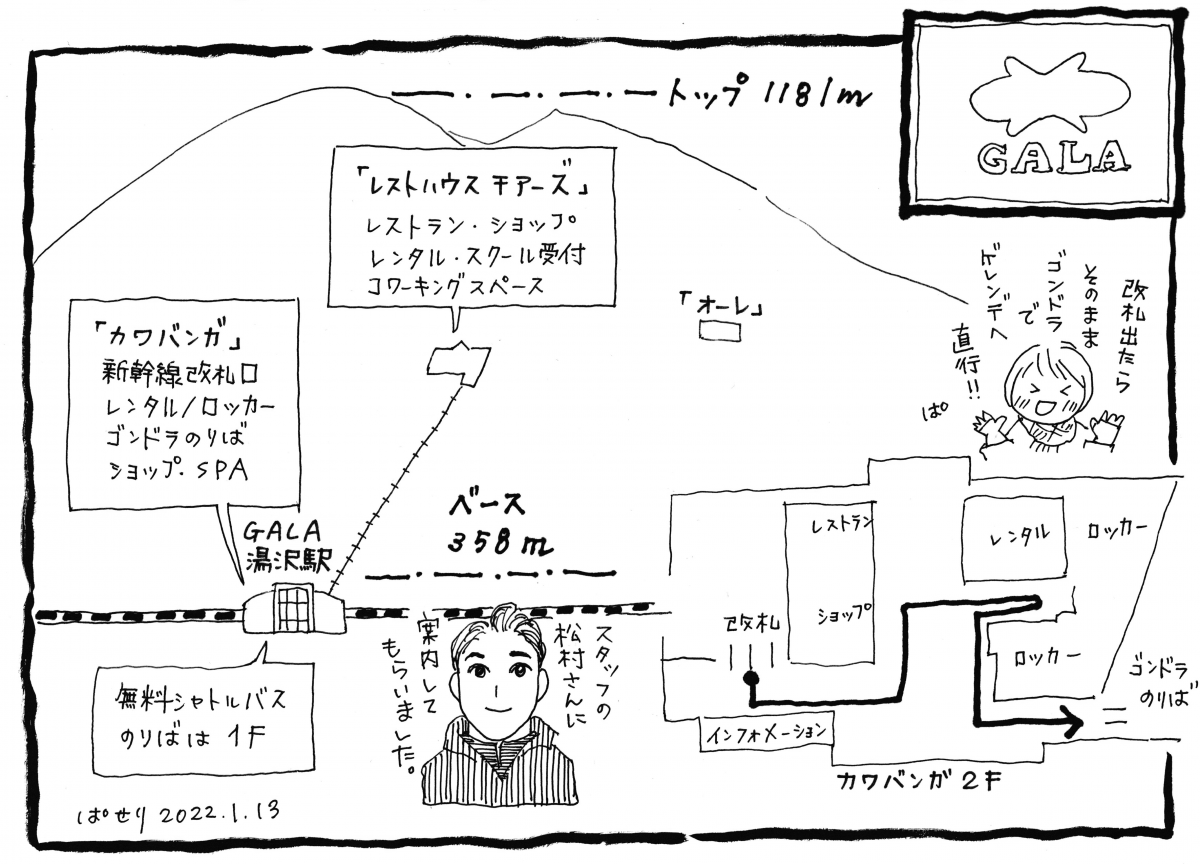 トップ 1181m
GALA
「レストハウス チアーズ」
レストラン・ショップ
レンタル・スクール受付
コワーキングスペース
「カワバンガ」
新幹線改札口
レンタル/ロッカー
ゴンドラのりば
ショップ・SPA
「オーレ」
改札出たら
そのまま
ゴンドラ
で
ゲレンデへ
直行!!
ぱ
GALA
湯沢駅
ベース
358m
無料シャトルバス
のりばは 1F
スタッフの
松村さんに
案内して
もらいました。
レストラン
ショップ
レンタル
ロッカー
改札
ロッカー
ゴンドラ
のりば
インフォメーション
カワバンガ2F
ぱせり 2022.1.13